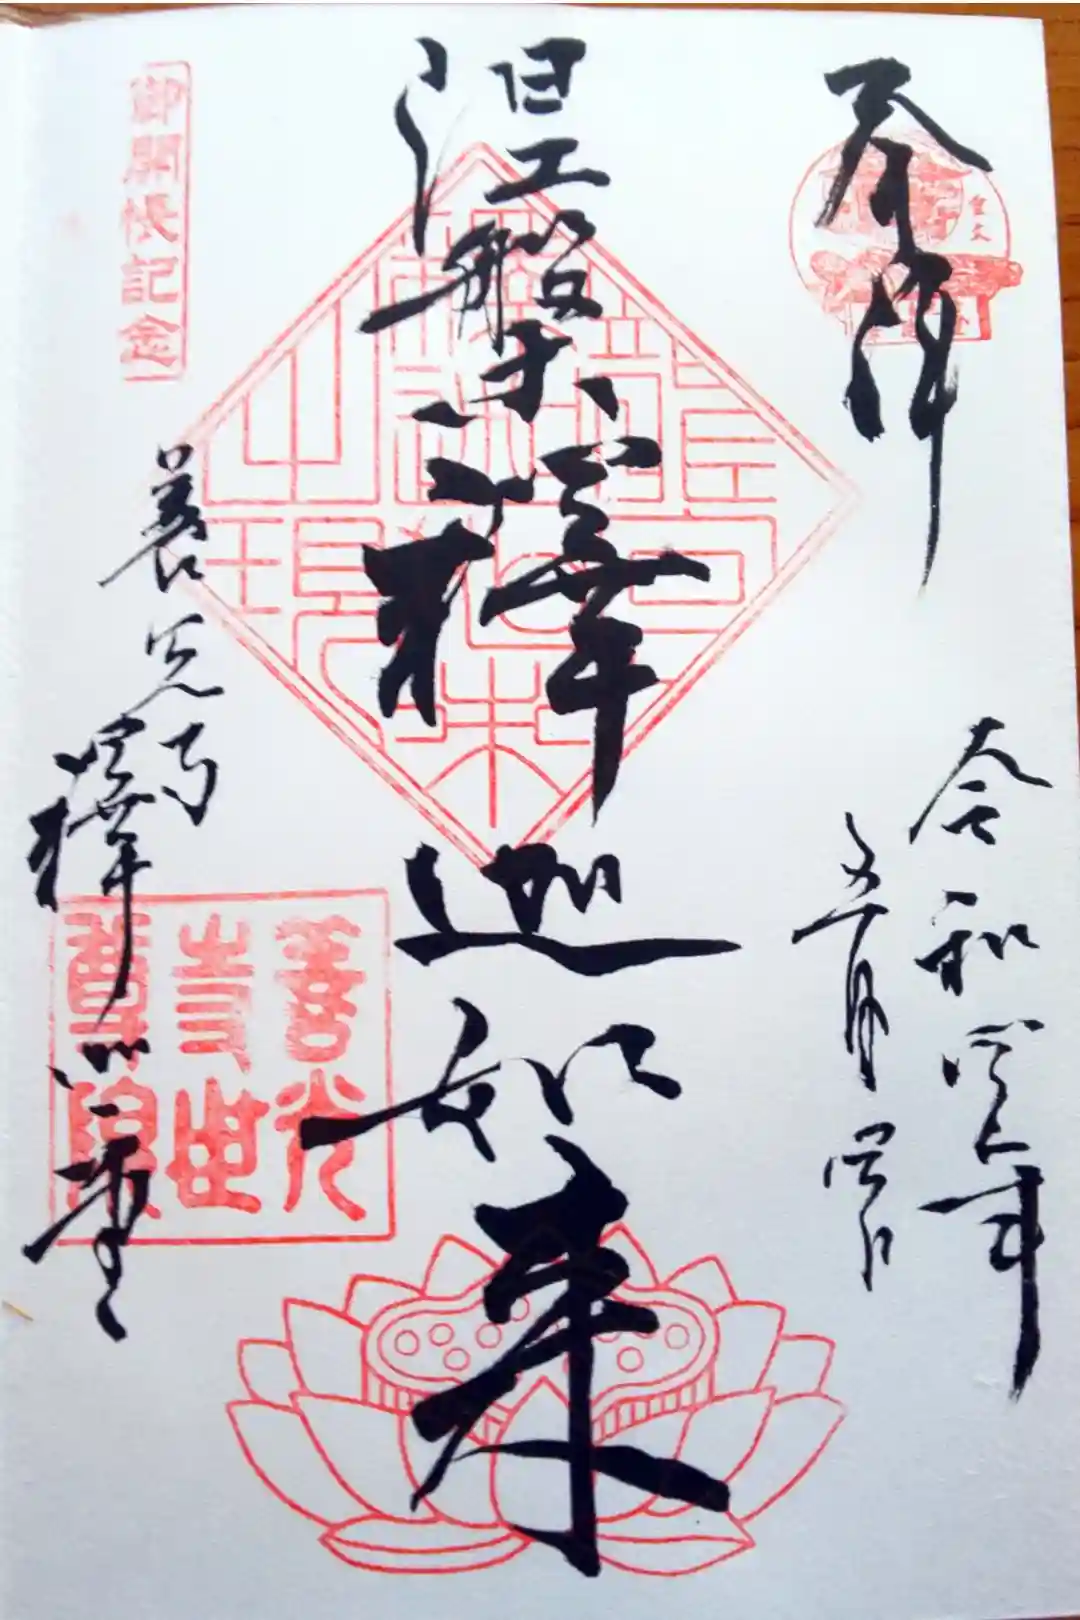 奉拝
令和四年
五月四日
涅槃釋迦如来
御開帳記念
善光寺
釋迦堂
善光
寺世
尊院